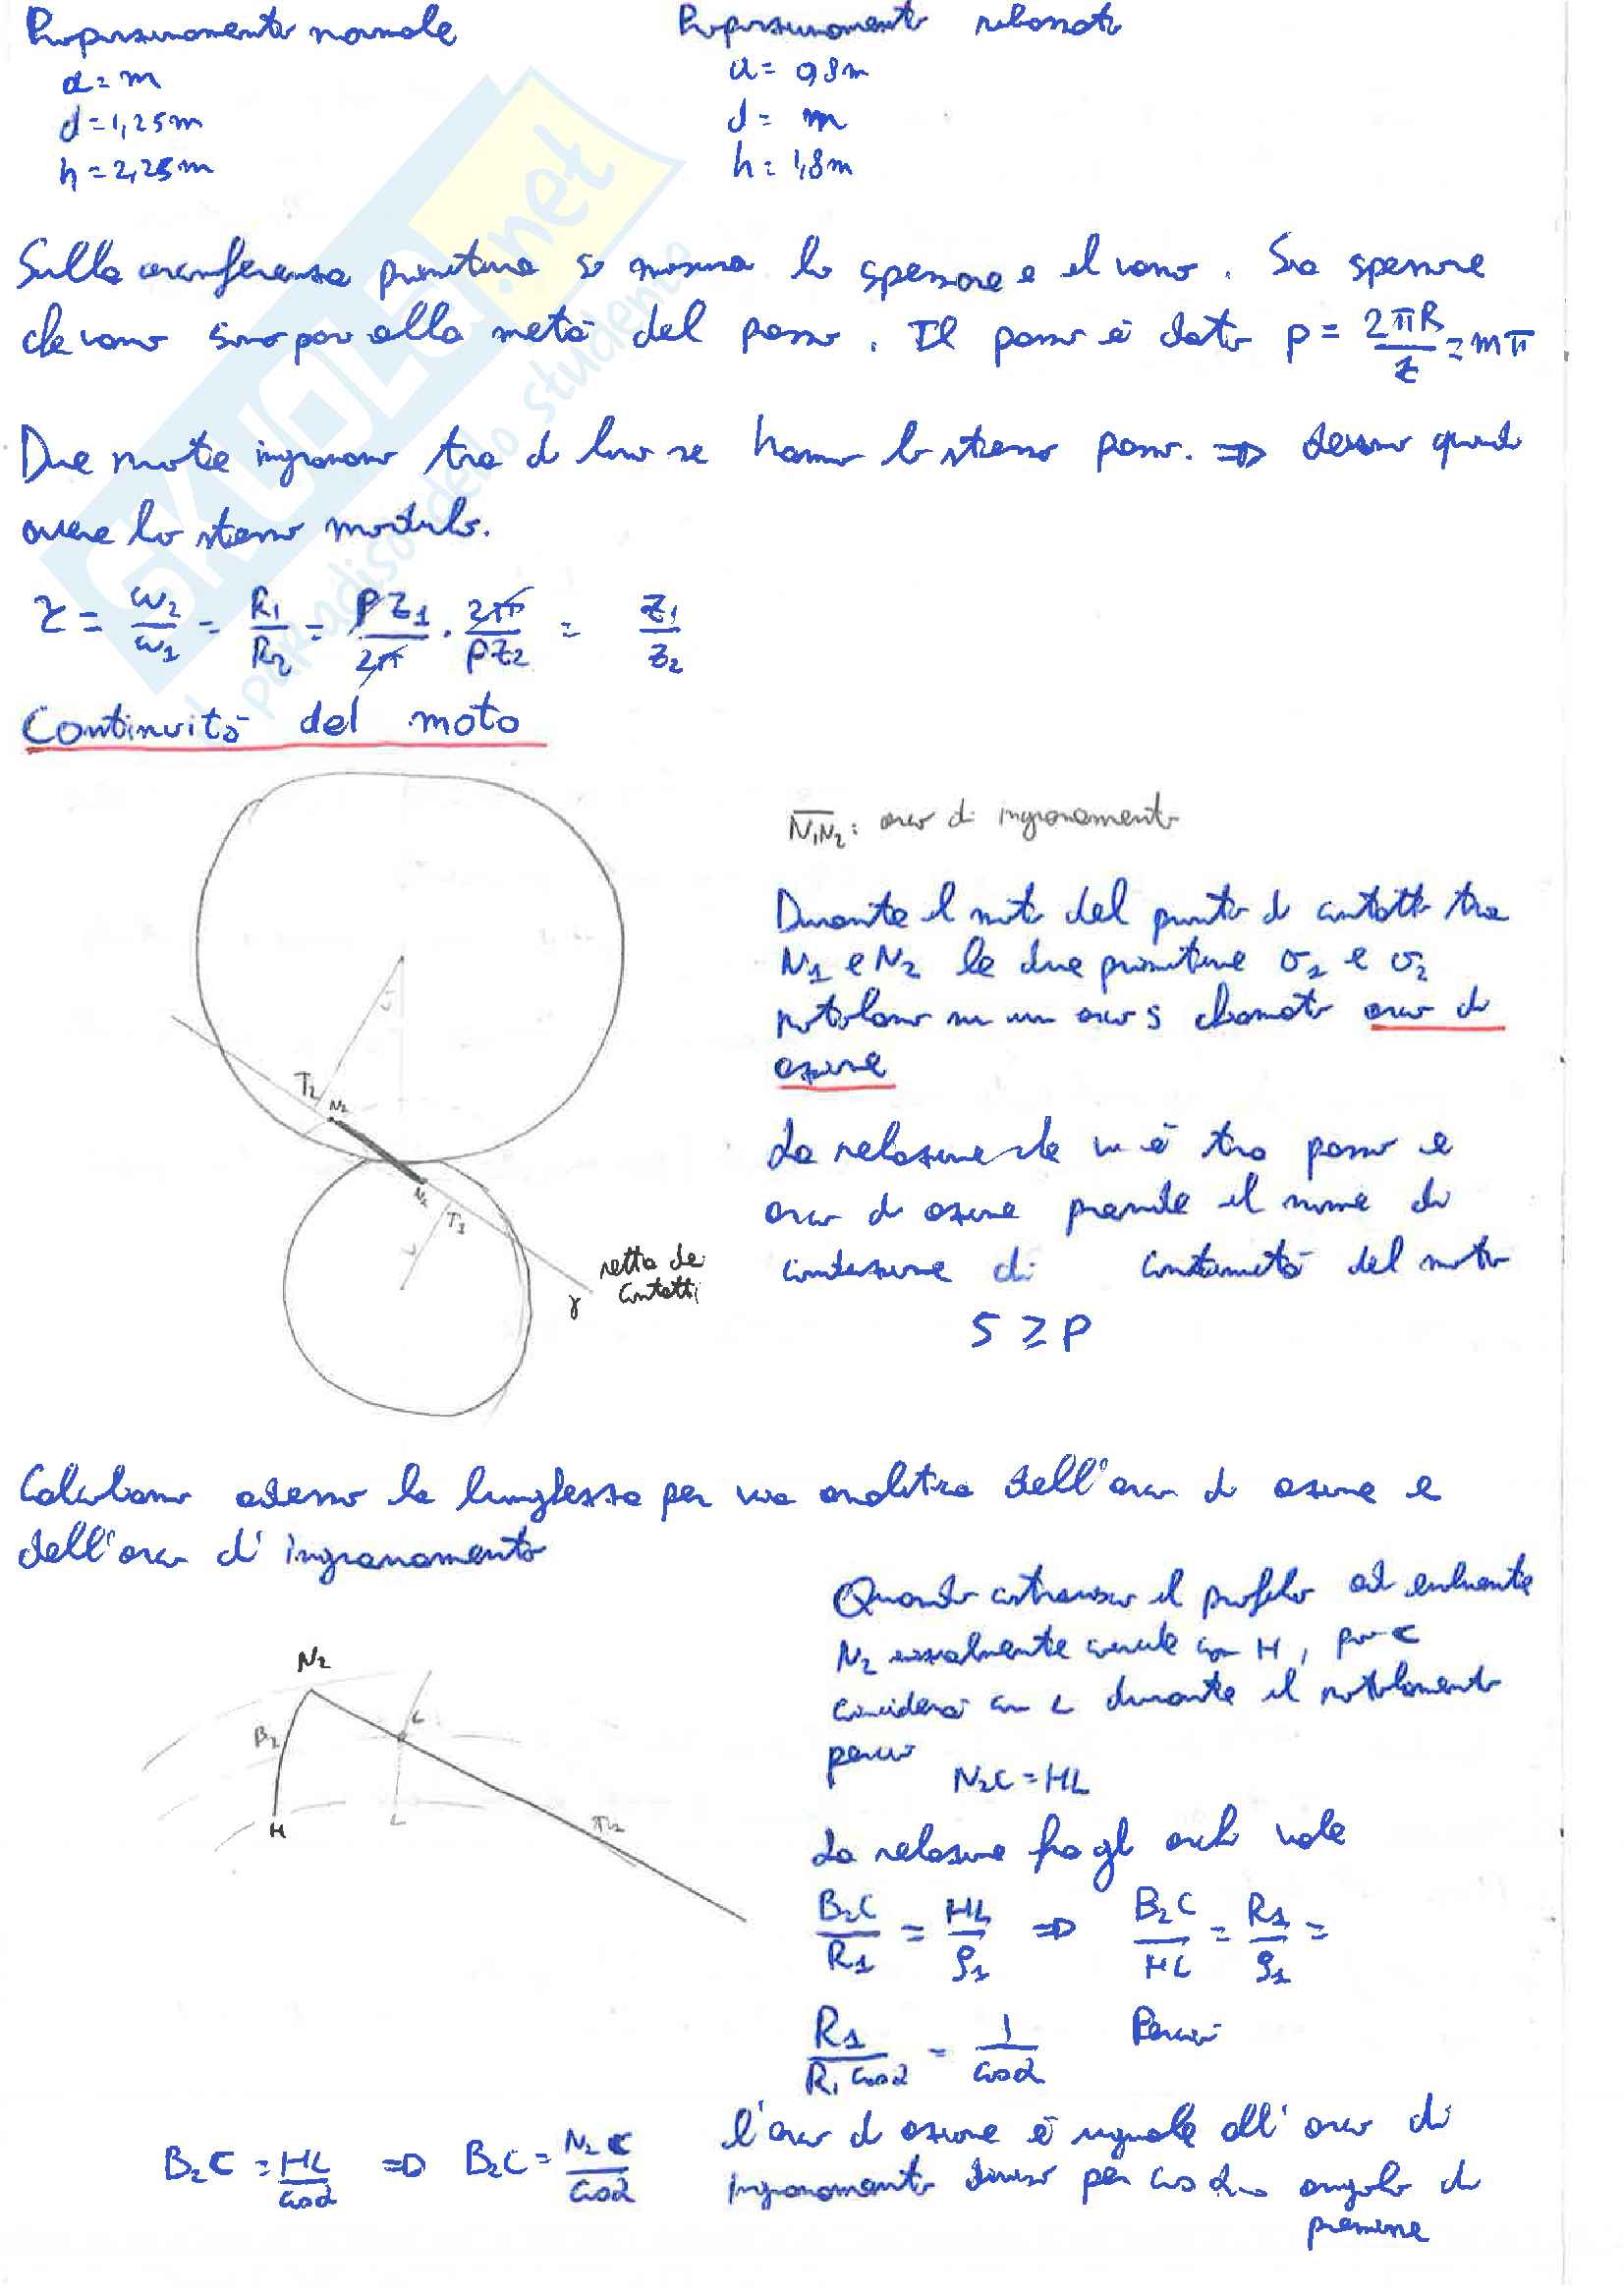 Proporzionamento normale
a = m
d = 1,25m
h = 2,25m
Proporzionamento ribassato
a = 0,8m
d = m
h = 1,8m
Sulla circonferenza primitiva si misura lo spessore e il vano. Sia spessore
che vano sono pari alla metà del passo. Il passo è dato p = 2πR/z = mπ
Due ruote ingranano tra di loro se hanno lo stesso passo. => devono quindi
avere lo stesso modulo.
τ = ω2/ω1 = R1/R2 = pZ1/2π · 2π/pZ2 = Z1/Z2
Continuità del moto
N1N2: arco di ingranamento
Durante il moto del punto di contatto tra
N1 e N2 le due primitive σ1 e σ2
rotolano su un arco s chiamato arco di
azione
La relazione che vi è tra passo e
arco di azione prende il nome di
condizione di continuità del moto
S ≥ P
T2
N2
N1
T1
retta dei
contatti
γ
Calcoliamo adesso la lunghezza per via analitica dell'arco di azione e
dell'arco di ingranamento
Quando costruisco il profilo ad evolvente
N2 inizialmente coincide con H, poi C
coinciderà con L durante il rotolamento
perciò
N2C = HL
La relazione fra gli archi vale
B2C/R1 = HL/ρ1 => B2C/HL = R1/ρ1 =
R1/R1 cosα = 1/cosα Perciò
N2
B2
C
H
L
B2C = HL/cosα => B2C = N2C/cosα
l'arco di azione è uguale all'arco di
ingranamento diviso per cos α → angolo di
pressione
SKUOLA.net
il paradiso dello studente